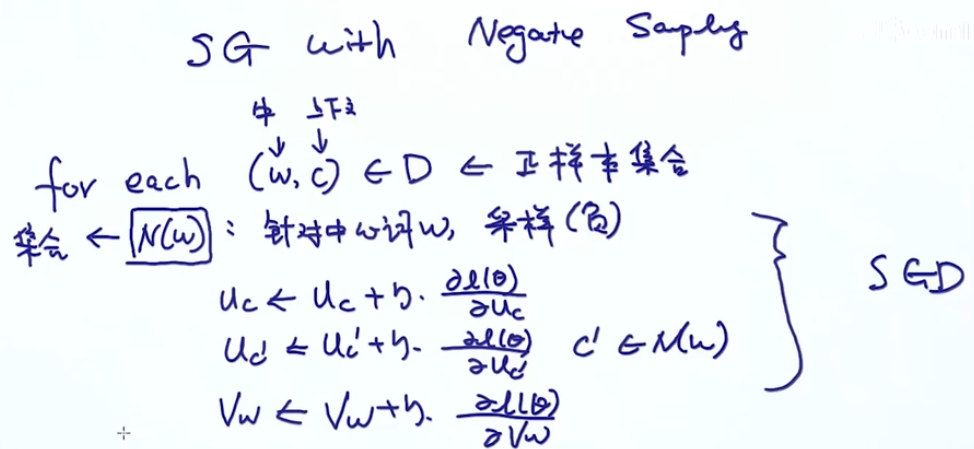 SG with Negative Sampling
中 上下文
↓ ↓
for each (w, c) ∈ D ← 正样本集合
集合 ← N(w) : 针对中心词w, 采样(负)
u_c ← u_c + η · ∂ℓ(θ)/∂u_c
u_c' ← u_c' + η · ∂ℓ(θ)/∂u_c' c' ∈ N(w)
V_w ← V_w + η · ∂ℓ(θ)/∂V_w
SGD